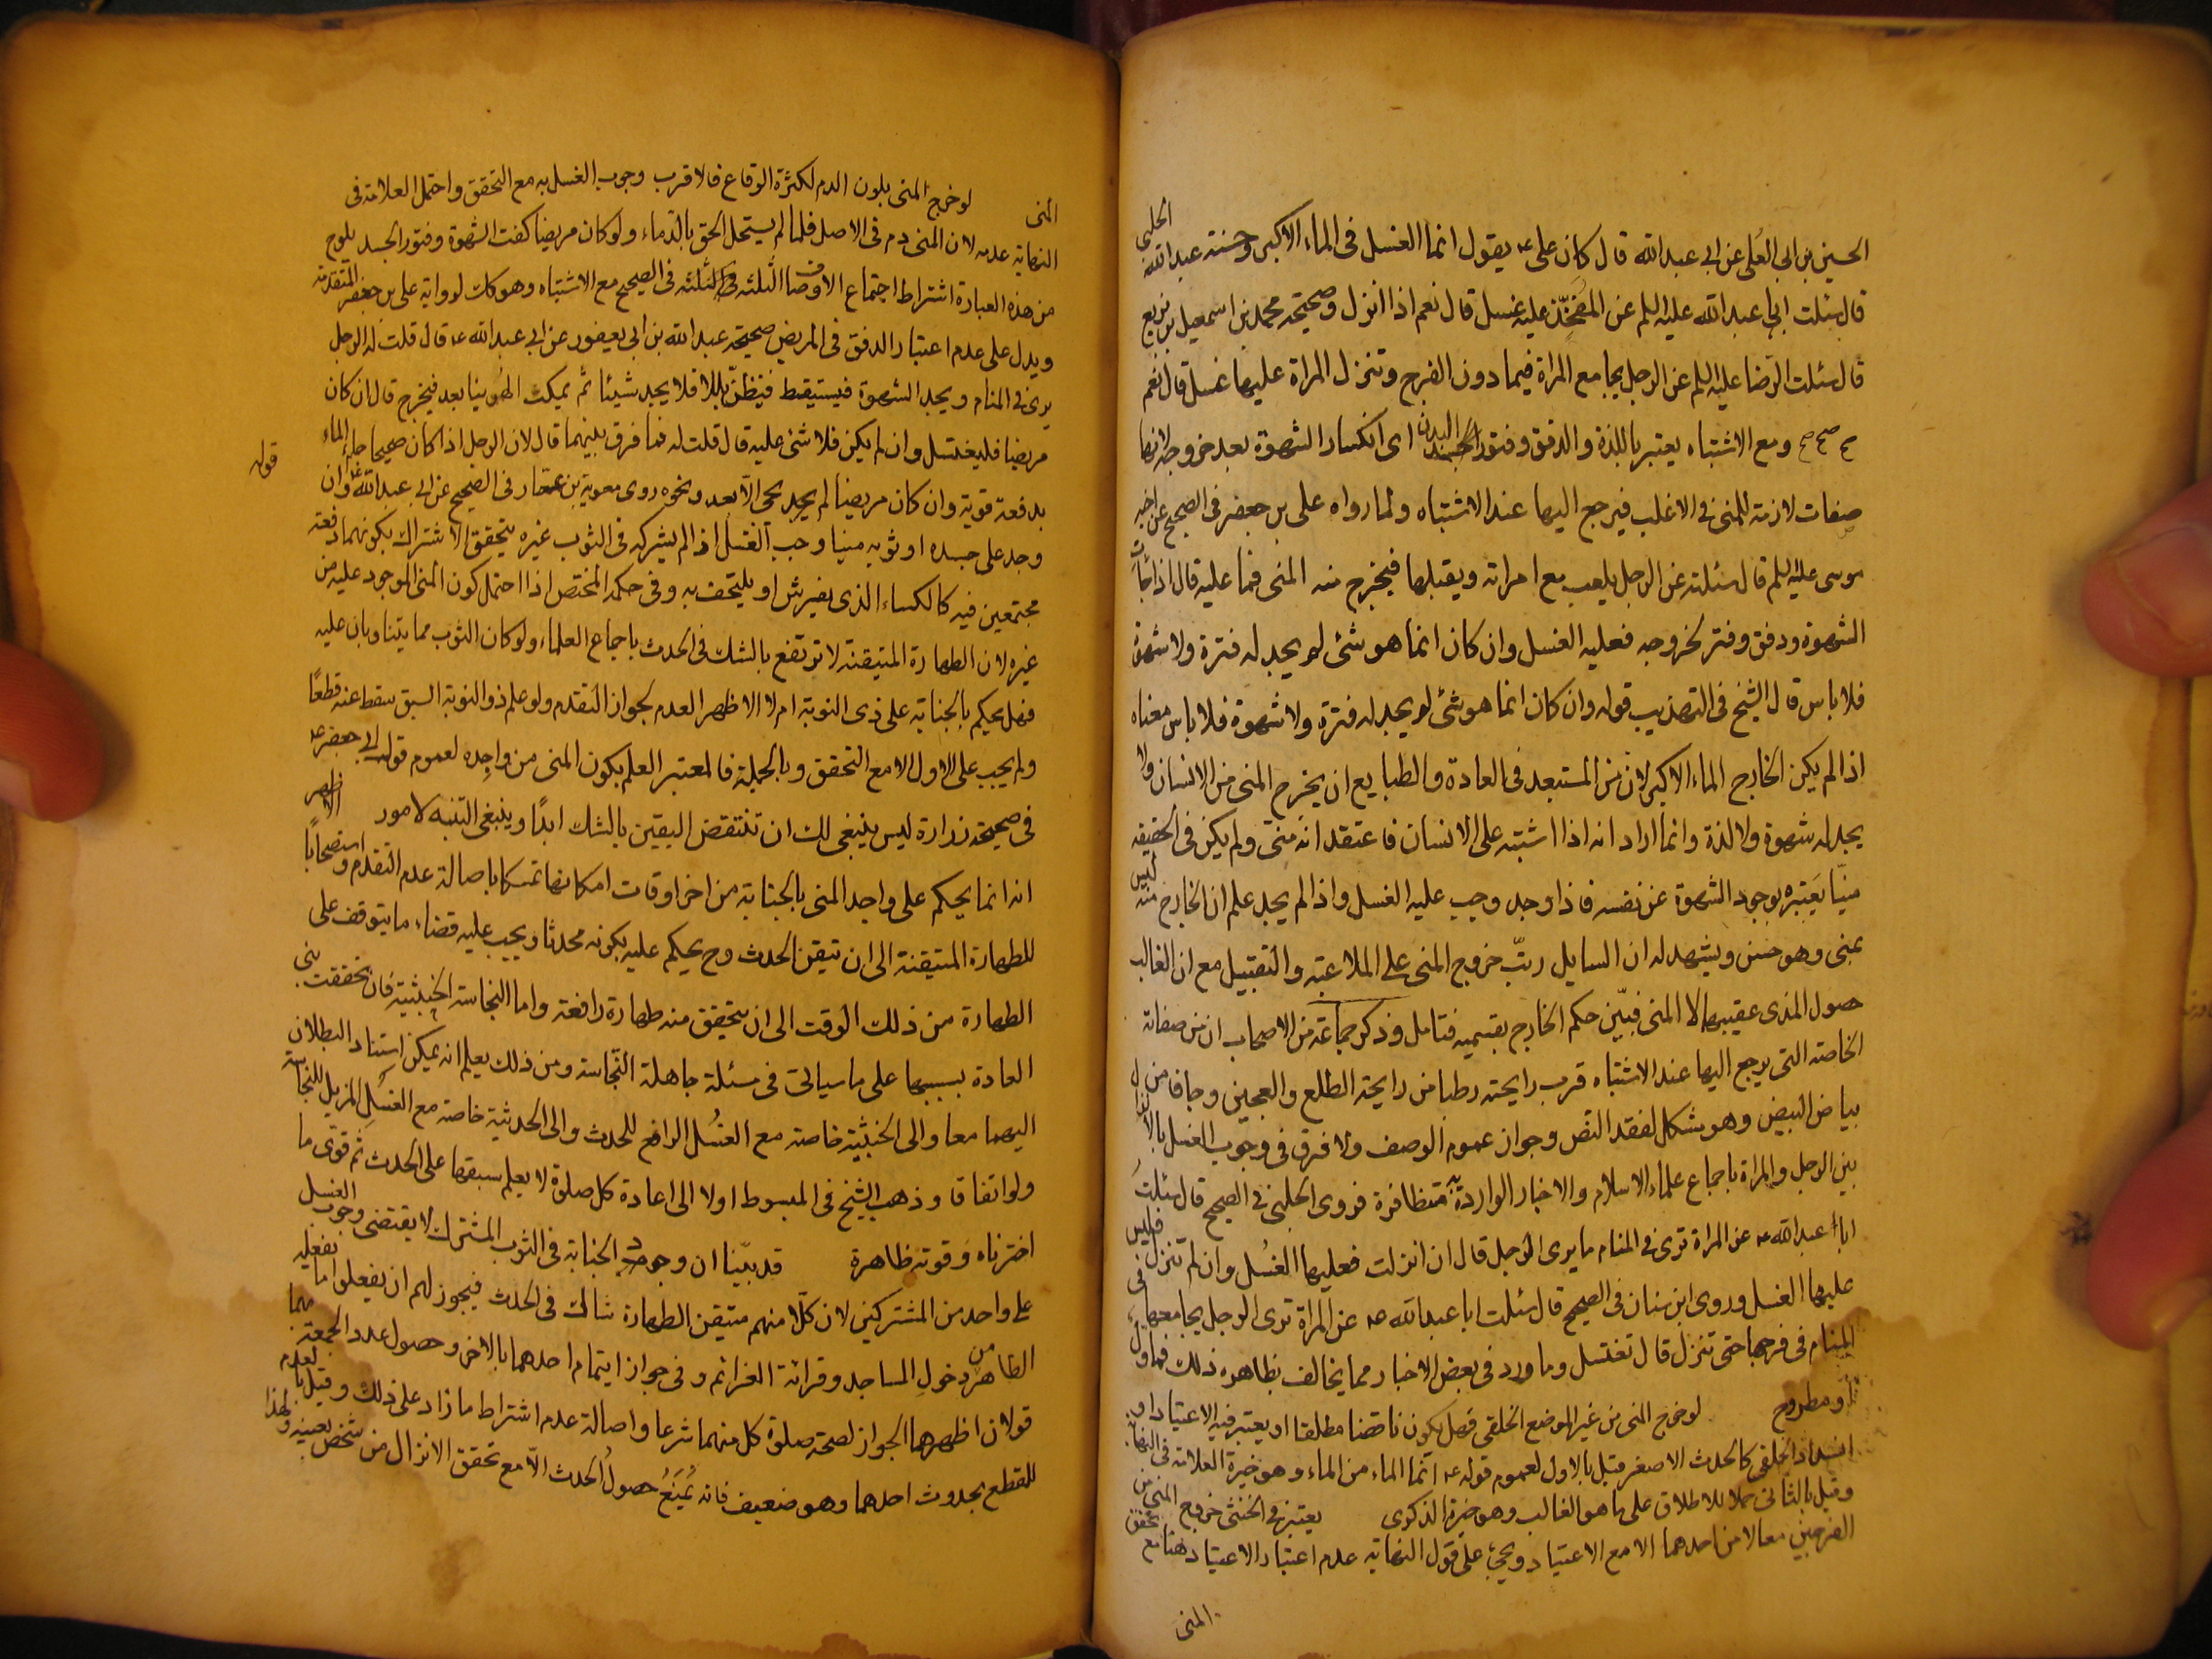 الحسين بن ابى العلى عن ابى عبد الله قال كان على ع يقول انما الغسل فى الماء الاكبر وحسنة عبد الله الحلبى
قال سئلت ابا عبد الله عليه السلم عن المفخذ عليه غسل قال نعم اذا انزل وصحيحة محمد بن اسمعيل بن بزيع
قال سئلت الرضا عليه السلم عن الرجل يجامع المراة فيما دون الفرج وتنزل المراة عليها غسل قال نعم
ومع الاشتباه يعتبر باللذة والدفق وفتور الجسد البدن اى انكسار الشهوة بعد خروجه لانها
صفات لازمة للمنى فى الاغلب فيرجع اليها عند الاشتباه ولما رواه على بن جعفر فى الصحيح عن اخيه
موسى عليه السلم قال سئلته عن الرجل يلعب مع امراته ويقبلها فيخرج منه المنى فما عليه قال اذا جائت
الشهوة ودفق وفتر لخروجه فعليه الغسل وان كان انما هو شئ لم يجد له فترة ولا شهوة
فلا باس قال الشيخ فى التهذيب قوله وان كان انما هو شئ لم يجد له فترة ولا شهوة فلا باس معناه
اذا لم يكن الخارج الماء الاكبر لان من المستبعد فى العادة والطبايع ان يخرج المنى من الانسان ولا
يجد له شهوة ولا لذة وانما اراد انه اذا اشتبه على الانسان فاعتقد انه منى ولم يكن فى الحقيقة
منيا يعتبره بوجود الشهوة عن نفسه فاذا وجد وجب عليه الغسل واذا لم يجد علم ان الخارج منه ليس
بمنى وهو حسن ويشهد له ان السايل رتب خروج المنى على الملاعبة والتقبيل مع ان الغالب
حصول المذى عقيبها لا المنى فبين حكم الخارج بقسميه فتامل وذكر جماعة من الاصحاب ان من صفاته
الخاصة التى يرجع اليها عند الاشتباه قرب رايحته رطبا من رايحة الطلع والعجين وجافا من
بياض البيض وهو مشكل لفقد النص وجواز عموم الوصف ولا فرق فى وجوب الغسل بالانزال
بين الرجل والمراة باجماع علماء الاسلام والاخبار الواردة به متظافرة فروى الحلبى فى الصحيح قال سئلت
ابا عبد الله ع عن المراة ترى فى المنام ما يرى الرجل قال ان انزلت فعليها الغسل وان لم تنزل فليس
عليها الغسل وروى ابن سنان فى الصحيح قال سئلت ابا عبد الله ع عن المراة ترى الرجل يجامعها فى
المنام فى فرجها حتى تنزل قال تغتسل وما ورد فى بعض الاخبار مما يخالف بظاهره ذلك فماول
او مطروح لو خرج المنى من غير الموضع الخلقى فهل يكون ناقضا مطلقا او يعتبر فيه الاعتياد او
انسداد الخلقى كالحدث الاصغر قيل بالاول لعموم قوله ع انما الماء من الماء وهو خيرة العلامة فى النهاية
وقيل بالثانى حملا للاطلاق على ما هو الغالب وهو خيرة الذكرى يعتبر فى الخنثى خروج المنى من
الفرجين معا لا من احدهما الا مع الاعتياد ويجئ على قول النهاية عدم اعتبار الاعتياد هنا مع تحقق
المنى
المنى لو خرج المنى بلون الدم لكثرة الوقاع فالاقرب وجوب الغسل به مع التحقق واحتمل العلامة فى
النهاية عدمه لان المنى دم فى الاصل فلما لم يستحل الحق بالدماء ولو كان مريضا كفت الشهوة وفتور الجسد يلوح
من هذه العبارة اشتراط اجتماع الاوصاف الثلثة فى الصحيح مع الاشتباه وهو كك لرواية على بن جعفر المتقدمة
ويدل على عدم اعتبار الدفق فى المريض صحيحة عبد الله بن ابى يعفور عن ابى عبد الله ع قال قلت له الرجل
يرى فى المنام ويجد الشهوة فيستيقظ فينظر بللا فلا يجد شيئا ثم يمكث الهوينا بعد فيخرج قال ان كان
مريضا فليغتسل وان لم يكن فلا شئ عليه قال قلت له فما فرق بينهما قال لان الرجل اذا كان صحيحا جاء الماء
قوله
بدفعة قوية وان كان مريضا لم يجئ الا بعد ونحوه روى معوية بن عمار فى الصحيح عن ابى عبد الله ع وان
وجد على جسده او ثوبه منيا وجب الغسل اذا لم يشركه فى الثوب غيره يتحقق الاشتراك بكونهما دفعة
مجتمعين فيه كالكساء الذى يفترش او يلتحف به وفى حكمه المختص اذا احتمل كون المنى الموجود عليه من
غيره لان الطهارة المتيقنة لا ترتفع بالشك فى الحدث باجماع العلماء ولو كان الثوب مما يتناوبان عليه
فهل يحكم بالجنابة على ذى النوبة ام لا الاظهر العدم لجواز التقدم ولو علم ذو النوبة السبق سقط عنه قطعا
ولم يجب على الاول الا مع التحقق وبالجملة فالمعتبر العلم بكون المنى من واجده لعموم قول ابى جعفر ع
فى صحيحة زرارة ليس ينبغى لك ان تنقض اليقين بالشك ابدا وينبغى التنبه لامور الاظهر
انه انما يحكم على واجد المنى بالجنابة من اخر اوقات امكانها تمسكا باصالة عدم التقدم واستصحابا
للطهارة المتيقنة الى ان تيقن الحدث وح يحكم عليه بكونه محدثا ويجب عليه قضاء ما يتوقف على
الطهارة من ذلك الوقت الى ان يتحقق منه طهارة رافعة واما النجاسة الخبثية فان تحققت بنى
العادة بسببها على ما سياتى فى مسئلة جاهلة النجاسة ومن ذلك يعلم انه يمكن استناد البطلان
اليهما معا والى الخبثية خاصة مع الغسل الرافع للحدث والى الحدثية خاصة مع الغسل المزيل للنجاسة
ولو اتفاقا وذهب الشيخ فى المبسوط اولا الى اعادة كل صلوة لا يعلم سبقها على الحدث ثم قوى ما
اخترناه وقوته ظاهرة قد بينا ان وجود الجنابة فى الثوب المشترك لا يقتضى وجوب الغسل
على واحد من المشتركين لان كلا منهم متيقن الطهارة شاك فى الحدث فيجوز لهم ان يفعلوا ما يفعله
الطاهر من دخول المساجد وقرائة الغرائم وفى جواز ايتمام احدهما بالاخر وحصول عدد الجمعة بهما
قولان اظهرهما الجواز لصحة صلوة كل منهما شرعا واصالة عدم اشتراط ما زاد على ذلك وقيل بالعدم
للقطع بحدوث احدهما وهو ضعيف فانه يمنع حصول الحدث الا مع تحقق الانزال من شخص بعينه ولهذا